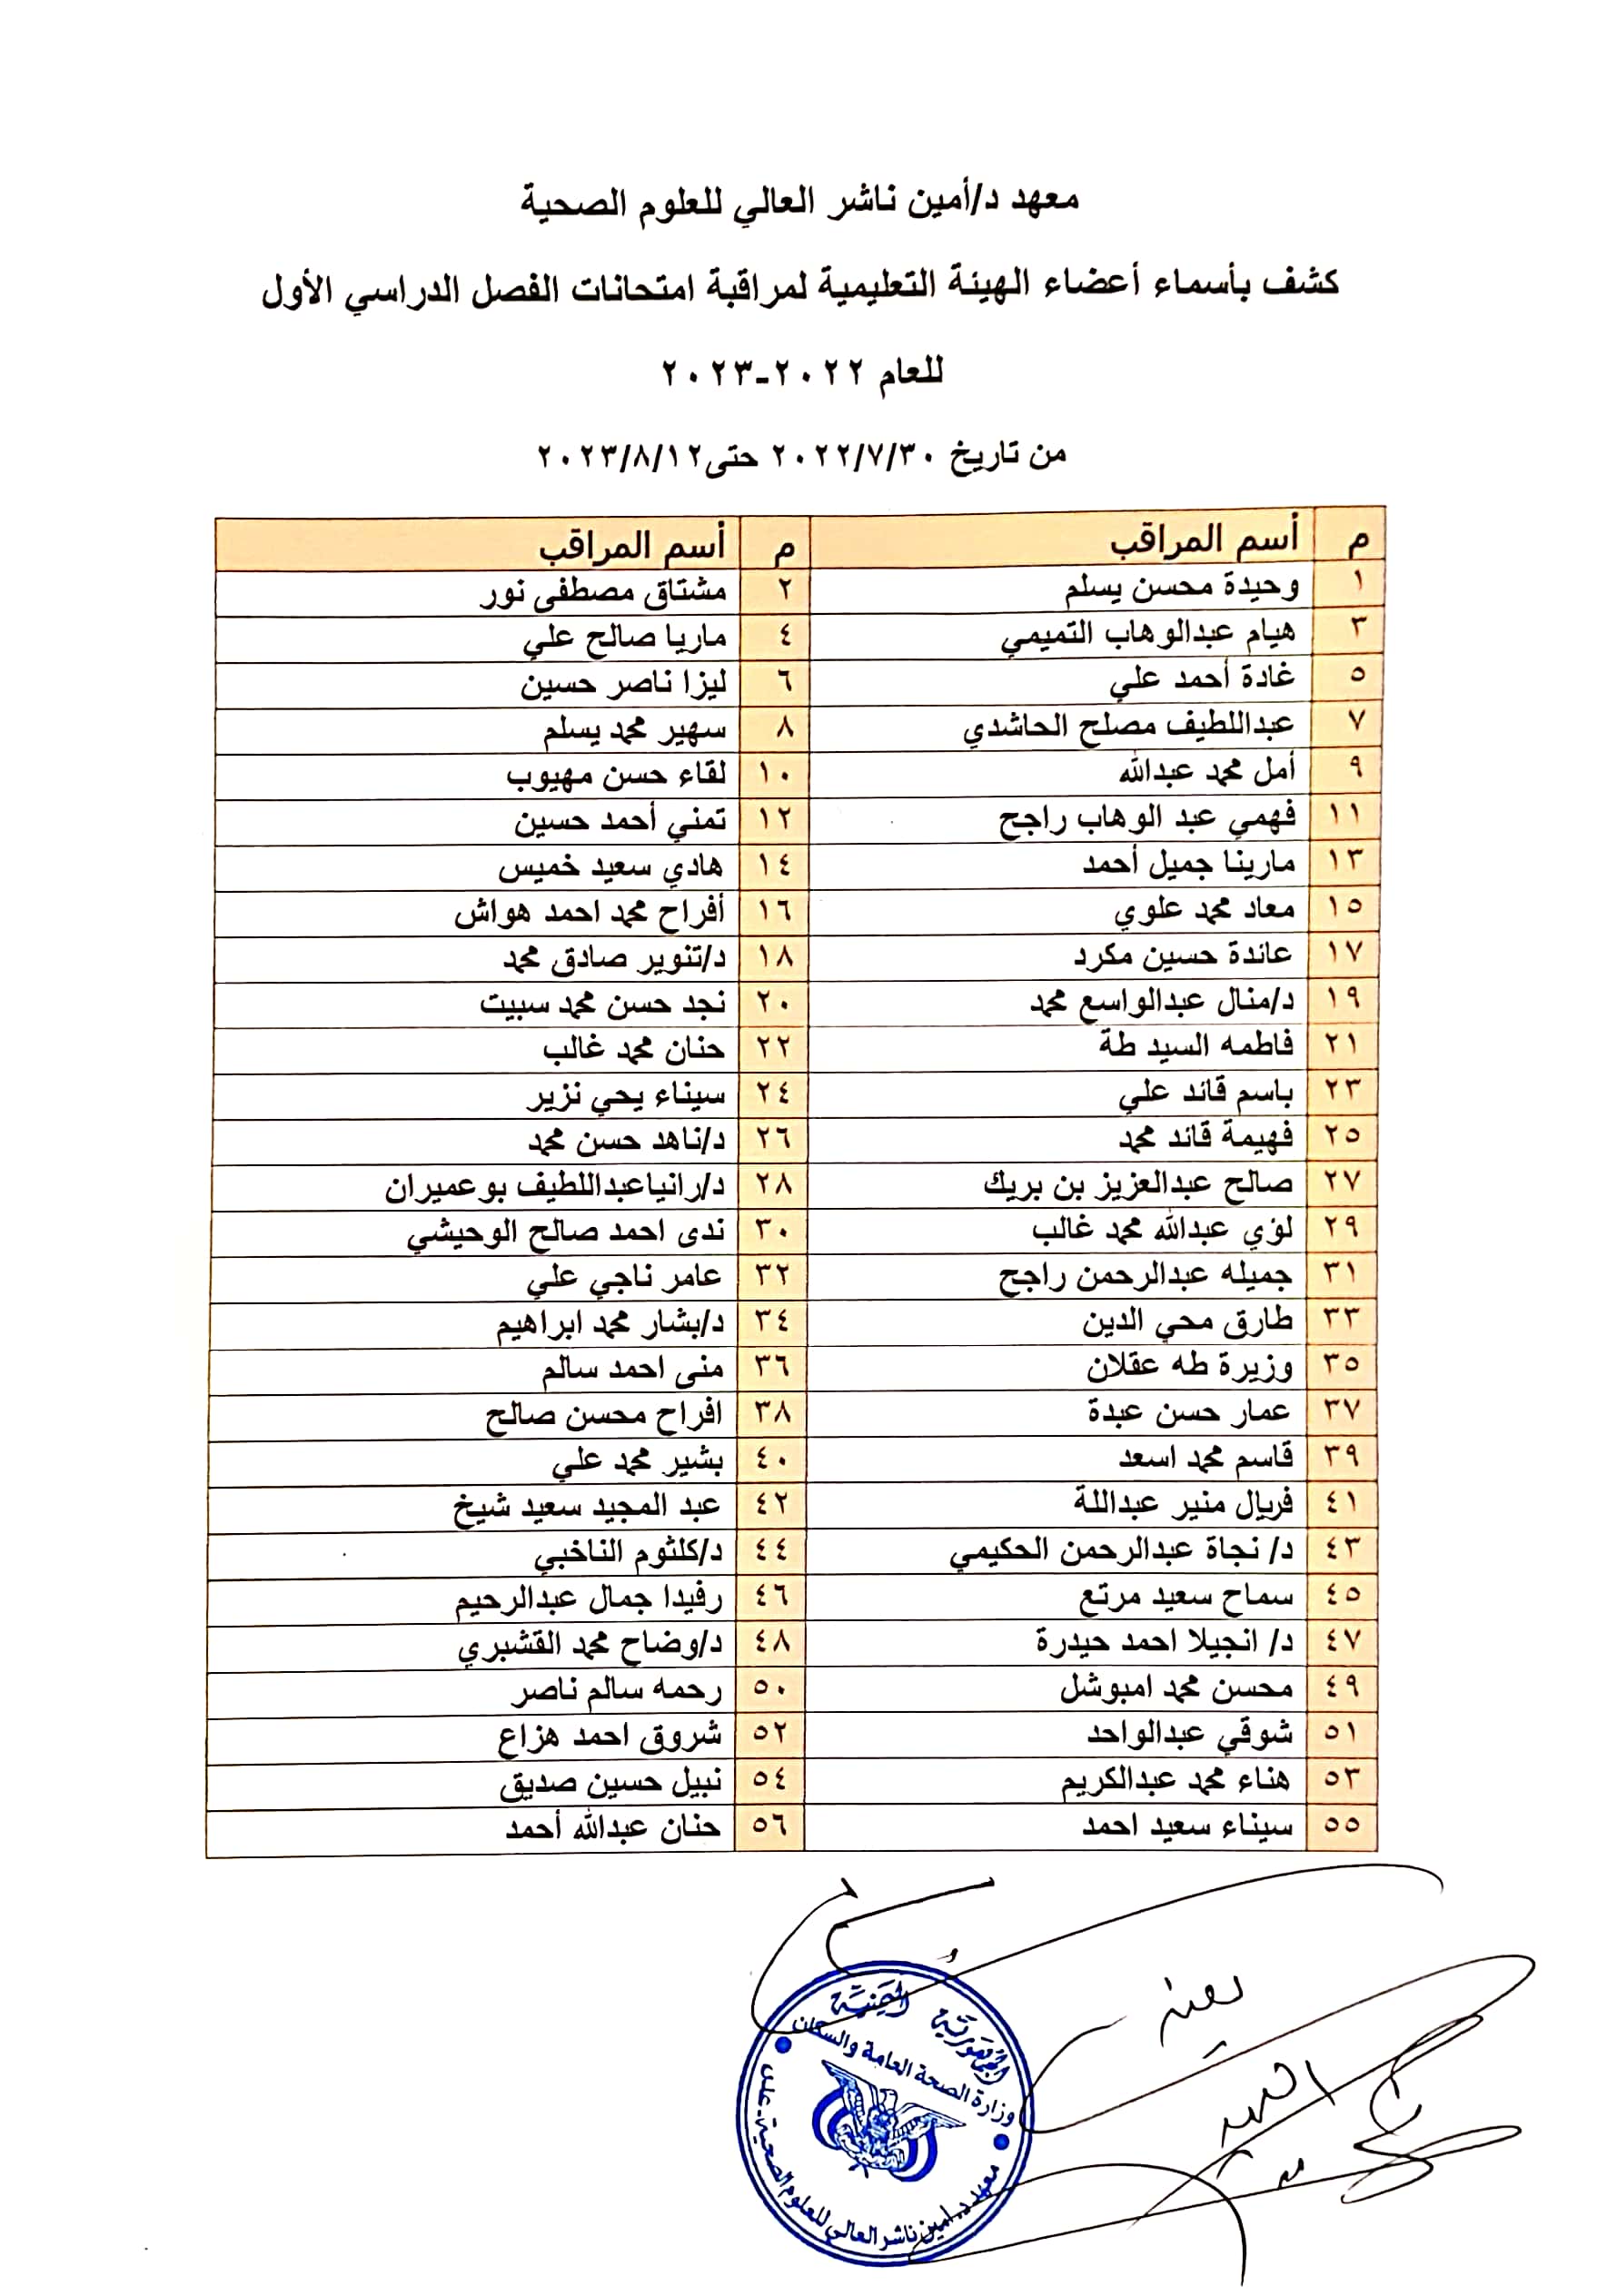 معهد د/أمين ناشر العالي للعلوم الصحية
كشف بأسماء أعضاء الهيئة التعليمية لمراقبة امتحانات الفصل الدراسي الأول
للعام ٢٠٢٢-٢٠٢٣
من تاريخ ٢٠٢٢/٧/٣٠ حتى٢٠٢٣/٨/١٢
م أسم المراقب م أسم المراقب
١ وحيدة محسن يسلم ٢ مشتاق مصطفى نور
٣ هيام عبدالوهاب التميمي ٤ ماريا صالح علي
٥ غادة أحمد علي ٦ ليزا ناصر حسين
٧ عبداللطيف مصلح الحاشدي ٨ سهير محمد يسلم
٩ أمل محمد عبدالله ١٠ لقاء حسن مهيوب
١١ فهمي عبد الوهاب راجح ١٢ تمني أحمد حسين
١٣ مارينا جميل أحمد ١٤ هادي سعيد خميس
١٥ معاد محمد علوي ١٦ أفراح محمد احمد هواش
١٧ عائدة حسين مكرد ١٨ د/تنوير صادق محمد
١٩ د/منال عبدالواسع محمد ٢٠ نجد حسن محمد سبيت
٢١ فاطمه السيد طة ٢٢ حنان محمد غالب
٢٣ باسم قائد علي ٢٤ سيناء يحي نزير
٢٥ فهيمة قائد محمد ٢٦ د/ناهد حسن محمد
٢٧ صالح عبدالعزيز بن بريك ٢٨ د/رانياعبداللطيف بوعميران
٢٩ لؤي عبدالله محمد غالب ٣٠ ندى احمد صالح الوحيشي
٣١ جميله عبدالرحمن راجح ٣٢ عامر ناجي علي
٣٣ طارق محي الدين ٣٤ د/بشار محمد ابراهيم
٣٥ وزيرة طه عقلان ٣٦ منى احمد سالم
٣٧ عمار حسن عبدة ٣٨ افراح محسن صالح
٣٩ قاسم محمد اسعد ٤٠ بشير محمد علي
٤١ فريال منير عبداللة ٤٢ عبد المجيد سعيد شيخ
٤٣ د/ نجاة عبدالرحمن الحكيمي ٤٤ د/كلثوم الناخبي
٤٥ سماح سعيد مرتع ٤٦ رفيدا جمال عبدالرحيم
٤٧ د/ انجيلا احمد حيدرة ٤٨ د/وضاح محمد القشبري
٤٩ محسن محمد امبوشل ٥٠ رحمه سالم ناصر
٥١ شوقي عبدالواحد ٥٢ شروق احمد هزاع
٥٣ هناء محمد عبدالكريم ٥٤ نبيل حسين صديق
٥٥ سيناء سعيد احمد ٥٦ حنان عبدالله أحمد
الجمهورية اليمنية
وزارة الصحة العامة والسكان
معهد د. امين ناشر العالي للعلوم الصحية-عدن